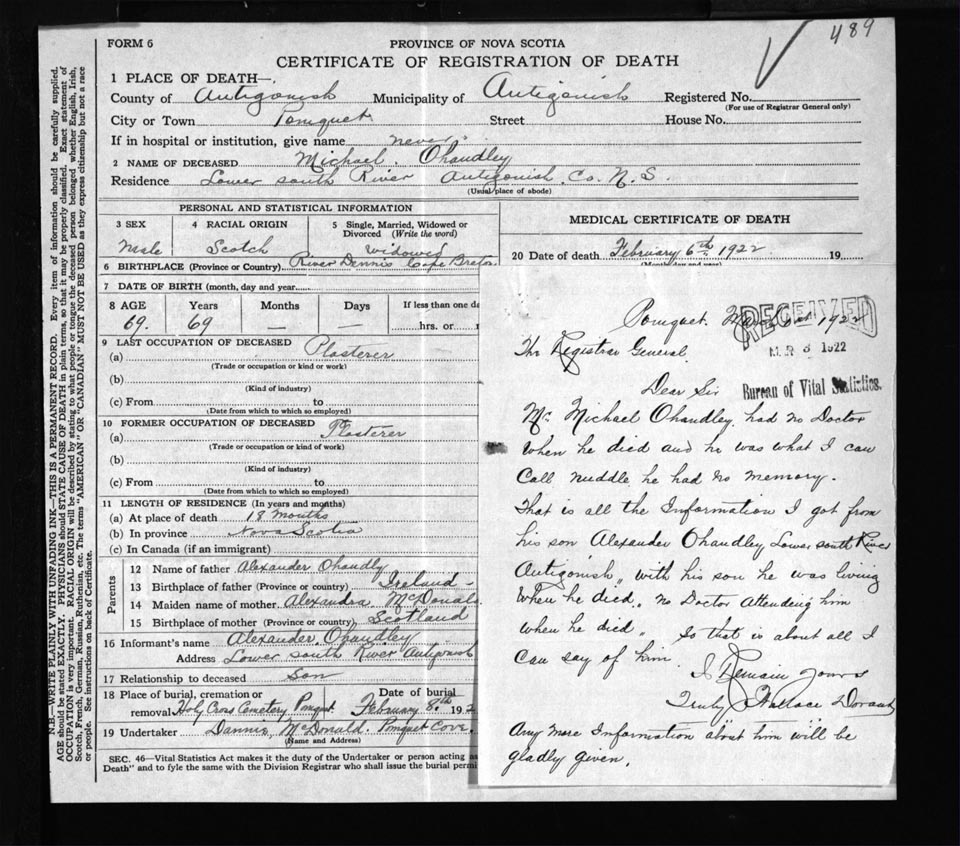 489
FORM 6
PROVINCE OF NOVA SCOTIA
CERTIFICATE OF REGISTRATION OF DEATH
1 PLACE OF DEATH—
County of Antigonish Municipality of Antigonish Registered No.
(For use of Registrar General only)
City or Town Pomquet Street House No.
If in hospital or institution, give name never
2 NAME OF DECEASED Michael Ohandley
Residence Lower south River Antigonish Co. N. S.
(Usual place of abode)
PERSONAL AND STATISTICAL INFORMATION
3 SEX 4 RACIAL ORIGIN 5 Single, Married, Widowed or Divorced (Write the word)
Male Scotch Widowed
6 BIRTHPLACE (Province or Country) River Dennis Cape Breton
7 DATE OF BIRTH (month, day and year)
8 AGE Years Months Days If less than one da
69. 69 — — hrs. or
9 LAST OCCUPATION OF DECEASED
(a) Plasterer
(Trade or occupation or kind or work)
(b)
(Kind of industry)
(c) From to
(Date from which to which so employed)
10 FORMER OCCUPATION OF DECEASED
(a) Plasterer
(Trade or occupation or kind of work)
(b)
(Kind of industry)
(c) From to
(Date from which to which so employed)
11 LENGTH OF RESIDENCE (In years and months)
(a) At place of death 18 Months
(b) In province Nova Scotia
(c) In Canada (if an immigrant)
Parents
12 Name of father Alexander Ohandly
13 Birthplace of father (Province or country) Ireland
14 Maiden name of mother Alexandra McDonald
15 Birthplace of mother (Province or country) Scotland
16 Informant's name Alexander Ohandley
Address Lower south River Antigonish
17 Relationship to deceased Son
18 Place of burial, cremation or Date of burial
removal Holy Cross Cemetery Pomquet February 8th 192
19 Undertaker Dannis McDonald Pomquet Cove
(Name and Address)
SEC. 46—Vital Statistics Act makes it the duty of the Undertaker or person acting as
Death" and to fyle the same with the Division Registrar who shall issue the burial permi
MEDICAL CERTIFICATE OF DEATH
20 Date of death February 6th 1922 19
(Month day and year)
Pomquet 1922
RECEIVED
The Registrar General
1922
Bureau of Vital Statistics.
Dear Sir
Mr Michael Ohandley had no Doctor
When he died and he was what I can
Call Muddle he had no memory.
That is all the Information I got from
his son Alexander Ohandley Lower south River
Antigonish,, with his son he was living
When he died,, no Doctor Attending him
When he died,, So that is about all I
Can say of him.
I Remain Yours
Truly Wallace Dorant
Any more Information about him will be
gladly given.
N.B.—WRITE PLAINLY WITH UNFADING INK—THIS IS A PERMANENT RECORD. Every item of information should be carefully supplied.
AGE should be stated EXACTLY. PHYSICIANS should STATE CAUSE OF DEATH in plain terms, so that it may be properly classified. Exact statement of
OCCUPATION is very important. RACIAL ORIGIN will be described by stating to what people or tongue the deceased person belonged whether English, Irish,
Scotch, French, German, Russian, Ruthenian, etc. The terms "AMERICAN" or "CANADIAN" MUST NOT BE USED as they express citizenship but not a race
or people. See instructions on back of Certificate.